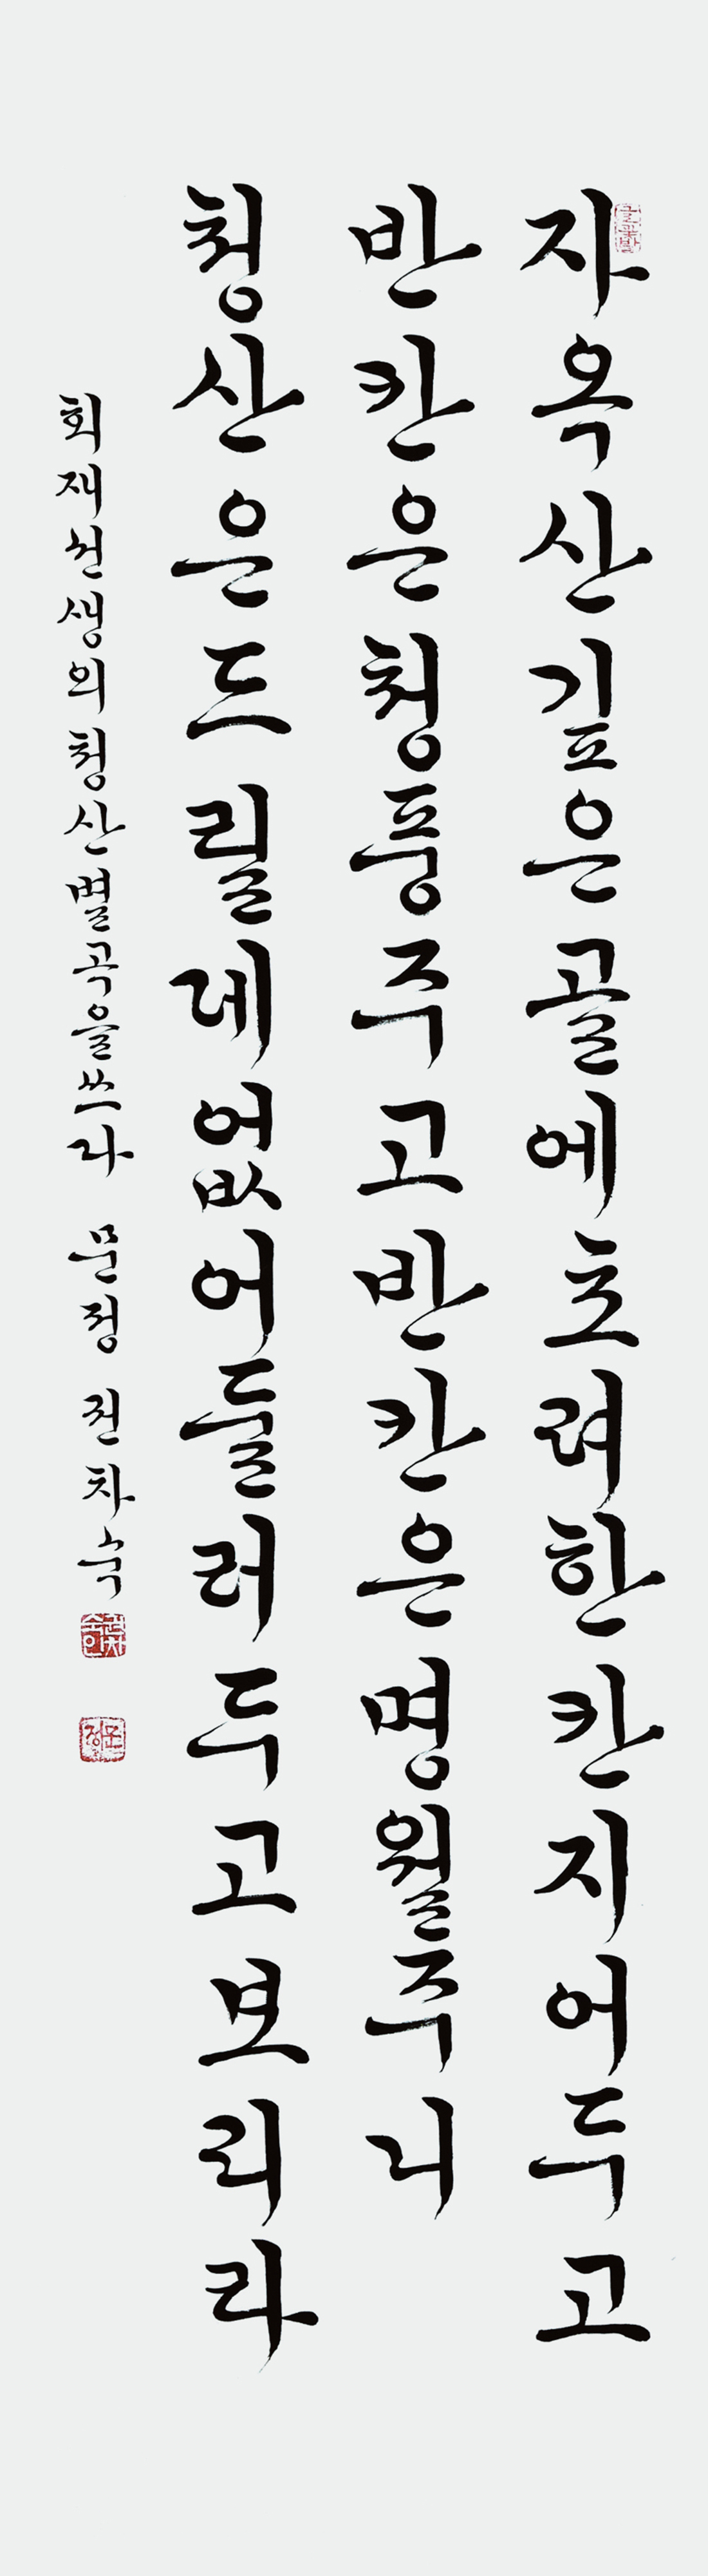 자옥산깊은골에초려한칸지어두고
반칸은청풍주고반칸은명월주니
청산은드릴데없어둘러두고보리라
회재선생의청산별곡을쓰다 문정 전차숙
전차숙인
문정